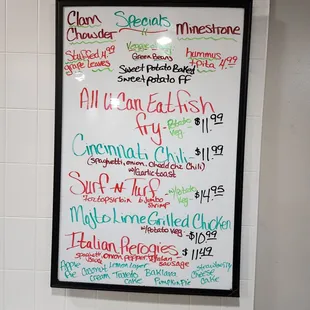 Clam Chowder
Specials
Minestrone
Stuffed 4.99
grape leaves
Green Beans
Sweet potato Baked
Sweet potato FF
hummus
+ pita 4.99
All U Can Eat fish
fry - Potato
veg - $11.99
Cincinnati Chili - $11.99
(spaghetti, onion, chedd chz, Chili)
w/Garlic toast
Surf -N- Turf
w/Potato
veg - $14.95
7oz top sirloin 6 Jumbo
shrimp
Mojito Lime Grilled Chicken
w/Potato veg - $10.99
Italian Pierogies - $11.49
spaghetti sauce onion pepper Italian
sausage
Apple pie
Coconut cream
Lemon layer
Tiramisu cake
Baklava
Pumpkin Pie
Strawberry
Cheese
cake